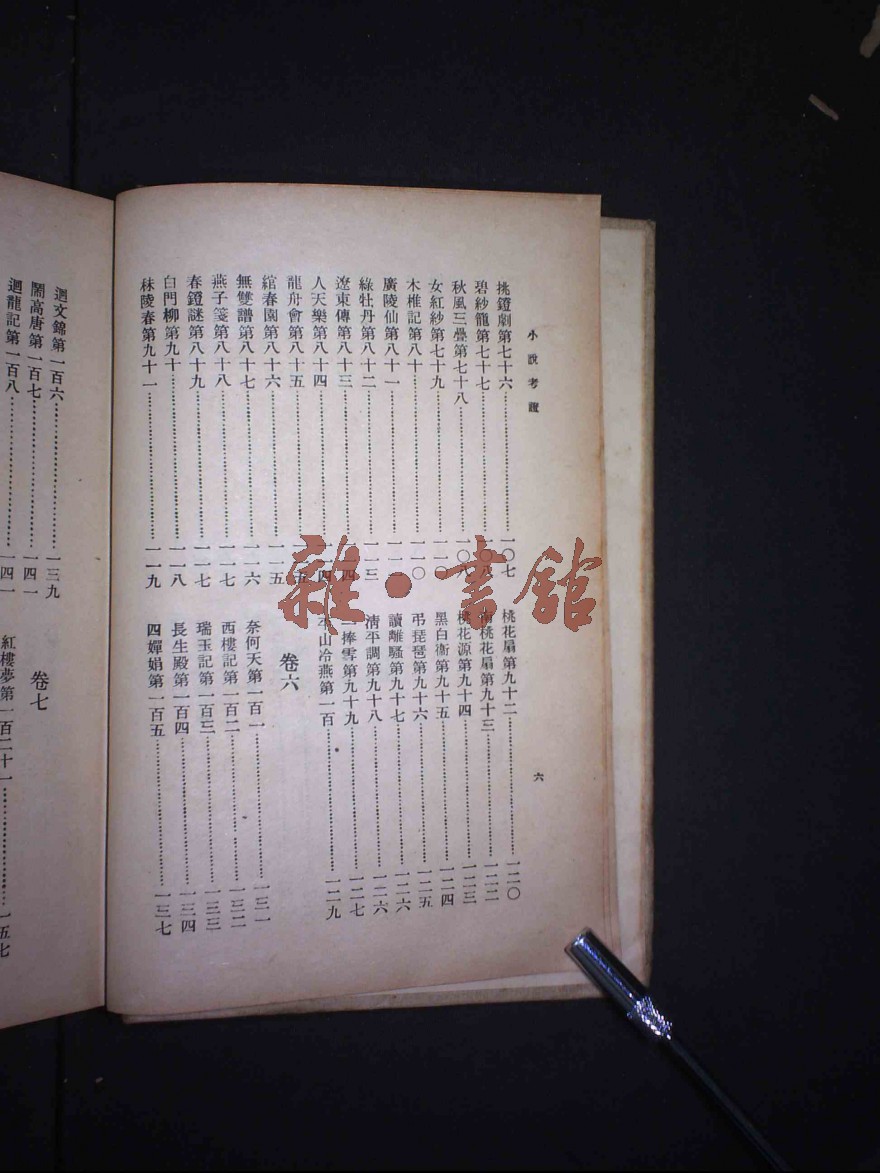 小說考證
六
挑鐙劇第七十六……一〇七
碧紗籠第七十七……一〇八
秋風三疊第七十八……一〇八
女紅紗第七十九……一一〇
木椎記第八十……一一〇
廣陵仙第八十一
綠牡丹第八十二……一一三
遼東傳第八十三……一一四
人天樂第八十四……一一四
龍舟會第八十五……一一五
綰春園第八十六……一一五
無雙譜第八十七……一一六
燕子箋第八十八……一一七
春鐙謎第八十九……一一七
白門柳第九十……一一八
秣陵春第九十一……一一九
桃花扇第九十二……一二〇
南桃花扇第九十三……一二二
桃花源第九十四……一二三
黑白衛第九十五……一二四
弔琵琶第九十六……一二五
讀離騷第九十七……一二六
清平調第九十八……一二六
一捧雪第九十九……一二七
山冷燕第一百……一二九
卷六
奈何天第一百一……一三一
西樓記第一百二……一三二
瑞玉記第一百三……一三三
長生殿第一百四……一三四
四嬋娟第一百五……一三七
迴文錦第一百六……一三九
鬧高唐第一百七……一四一
迴龍記第一百八……一四一
卷七
紅樓夢第一百二十一……一五七
雜·書館